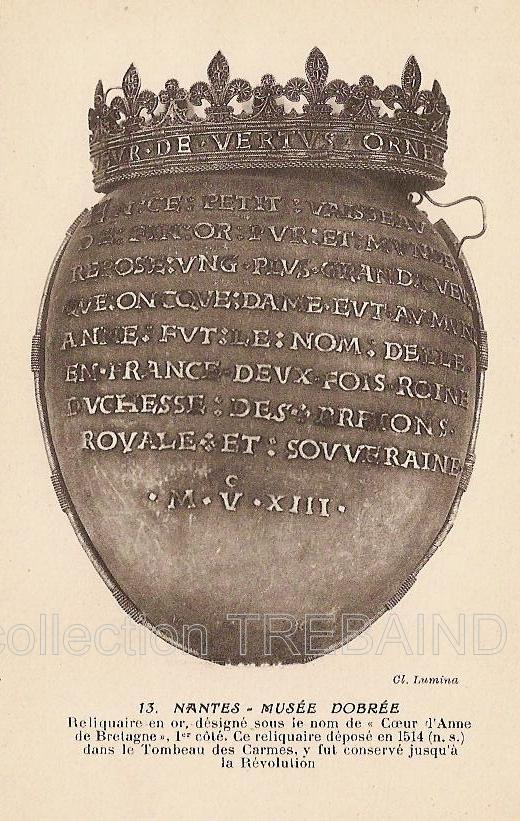 EUR · DE · VERTVS · ORNE
EN : CE : PETIT : VAISSEAV
DE : FIN : OR : PVR : ET : MVNDE
REPOSE : VNG · PLVS · GRAND : CVEVR
QVE · ONCQVE : DAME · EVT · AV MVNDE
ANNE : FVT : LE : NOM : DELLE
EN · FRANCE · DEVX · FOIS · ROINE
DVCHESSE : DES : BRETONS ·
ROYALE : ET : SOVVERAINE
C
· M · V · XIII ·
collection TREBAIND
Cl. Lumina
13. NANTES - MUSÉE DOBRÉE
Reliquaire en or, désigné sous le nom de « Cœur d'Anne
de Bretagne », 1er côté. Ce reliquaire déposé en 1514 (n. s.)
dans le Tombeau des Carmes, y fut conservé jusqu'à
la Révolution